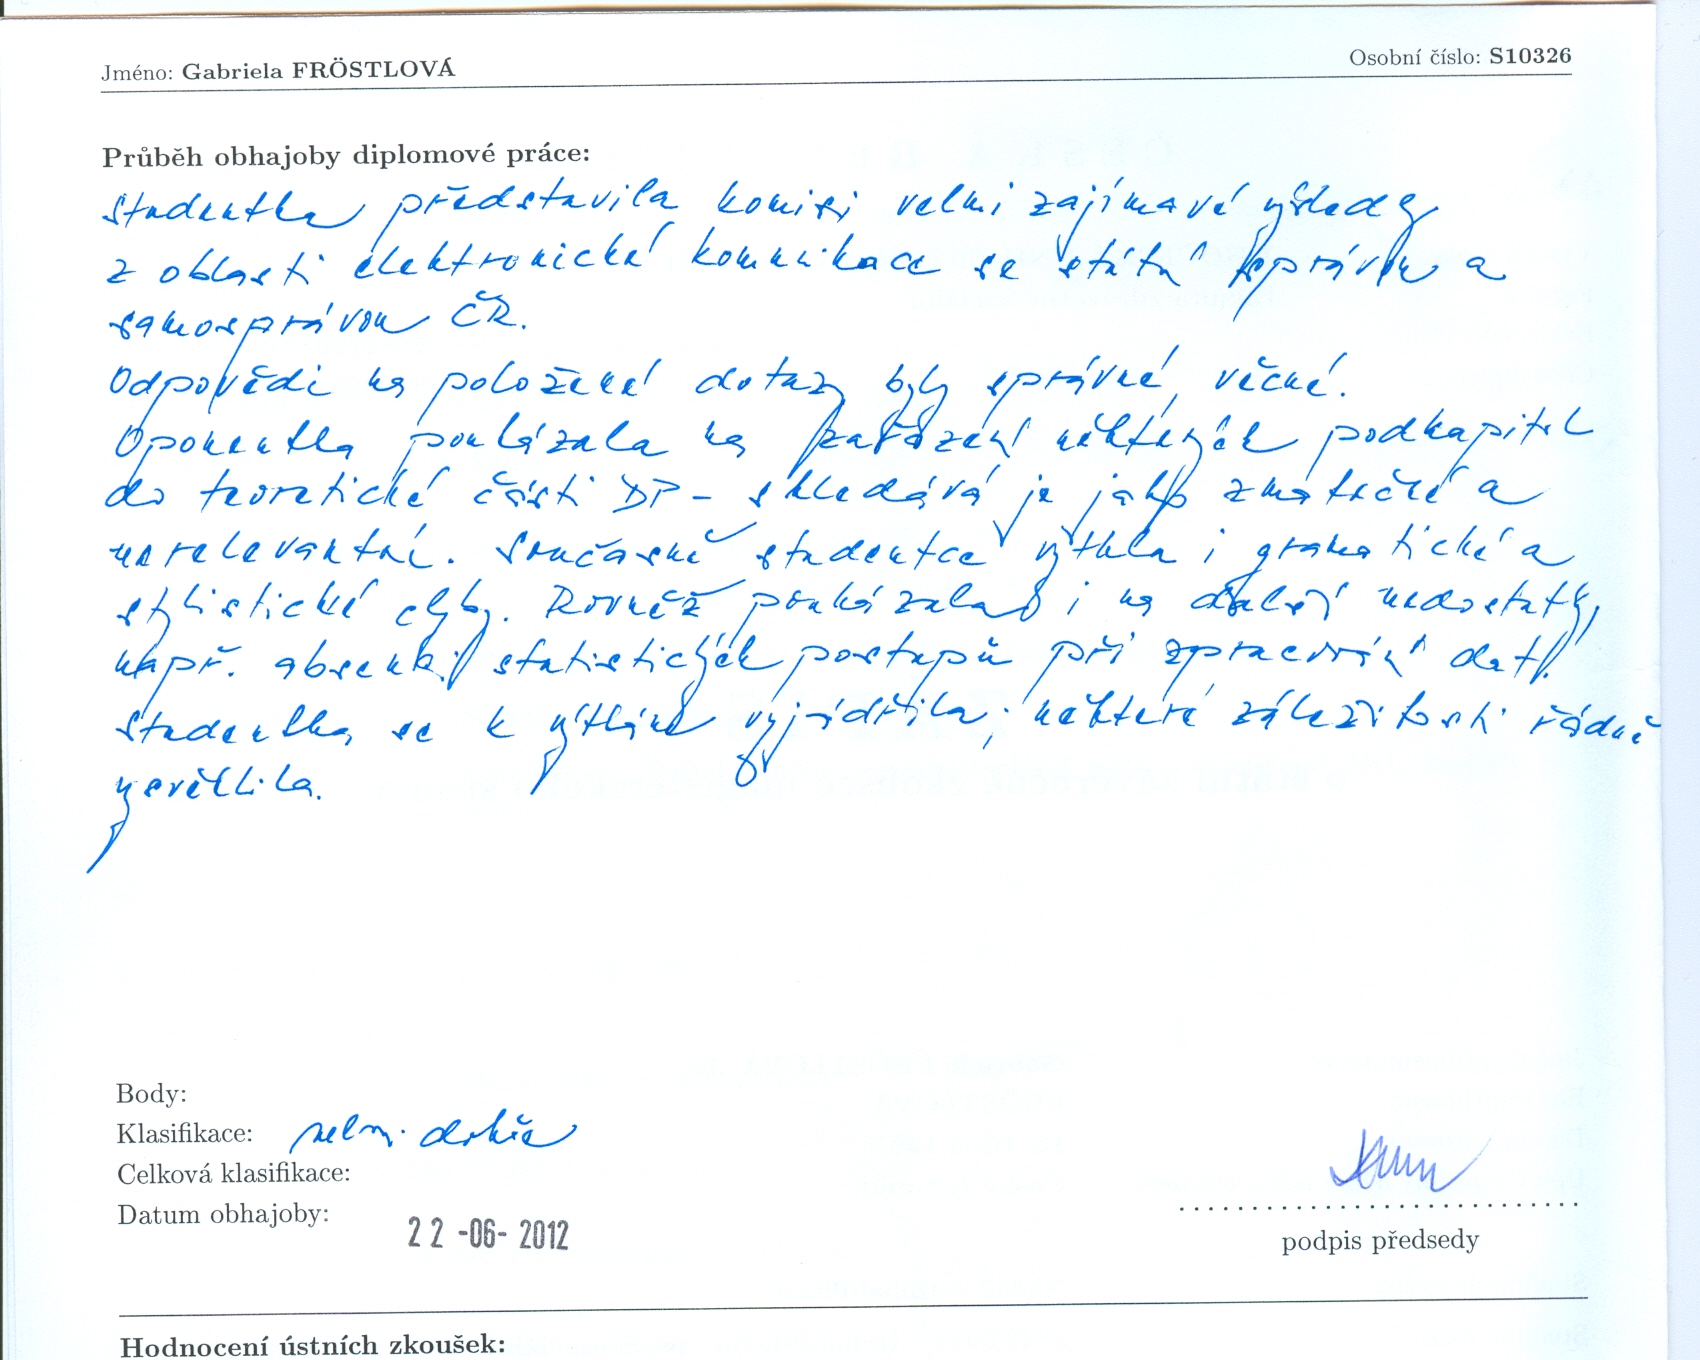 Jméno: Gabriela FRÖSTLOVÁ Osobní číslo: S10326
Průběh obhajoby diplomové práce:
Studentka představila komisi velmi zajímavé výsledky
z oblasti elektronické komunikace se státní správou a
samosprávou ČR.
Odpovědi na položené dotazy byly správné, věcné.
Oponentka poukázala na zařazení některých podkapitol
do teoretické části DP - shledává je jako zmatečné a
nerelevantní. Současně studentce vytkla i gramatické a
stylistické chyby. Rovněž poukázala i na další nedostatky,
např. absenci statistických postupů při zpracování dat.
Studentka se k výtkám vyjádřila, některé záležitosti řádně
vysvětlila.
Body:
Klasifikace: velmi dobře
Celková klasifikace:
Datum obhajoby: 22 -06- 2012
podpis předsedy
Hodnocení ústních zkoušek: